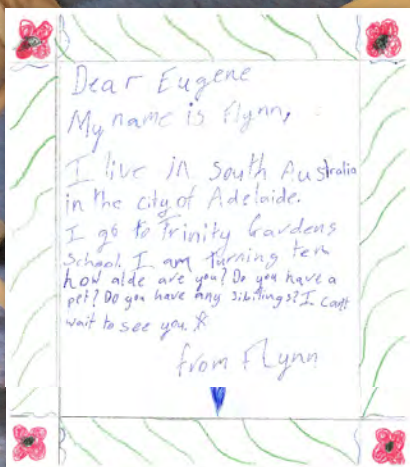 Dear Eugene
My name is Flynn,
I live in South Australia
in the city of Adelaide.
I go to Trinity Gardens
School. I am turning ten
how alde are you? Do you have a
pet? Do you have any sibilings? I cant
wait to see you
from Flynn